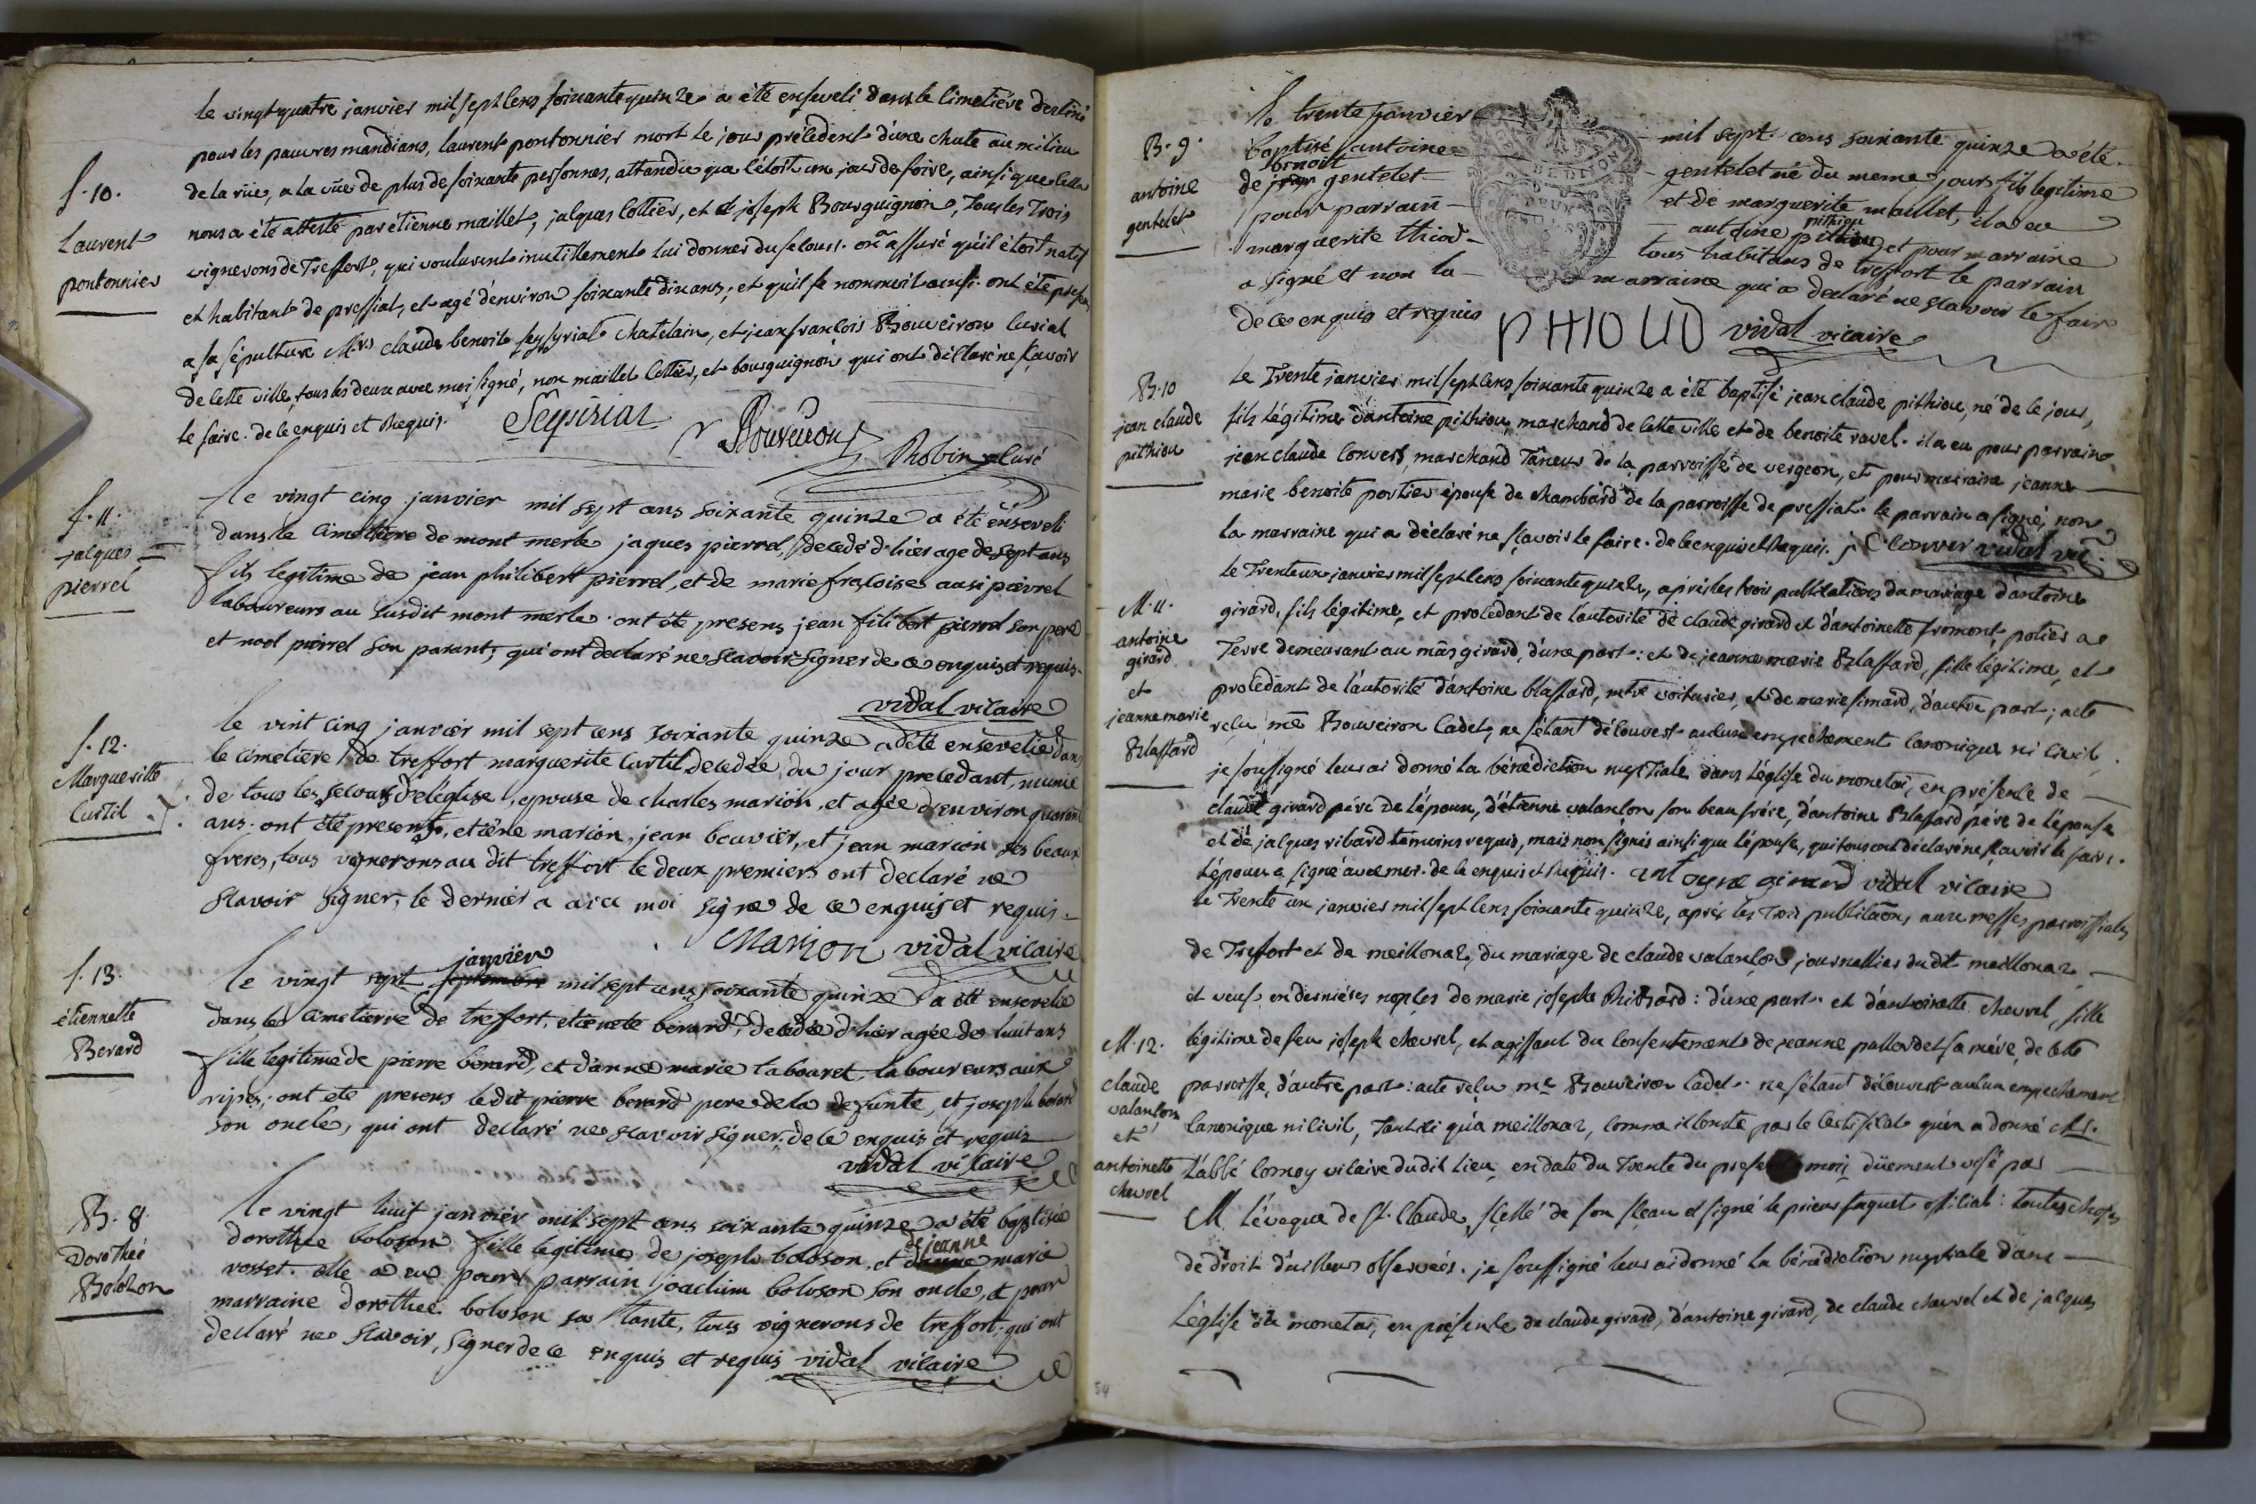 le vingtquatre janvier mil sept cens soixante quinze a été enseveli dans le cimetiére destiné
pour les pauvres mandians, laurent pontonnier mort le jour précédent d'une chute au milieu
de la rüe, a la vüe de plus de soixante personnes, attandu que c'étoit un jour de foire, ainsi que cela
S. 10.
nous a été attesté par étienne maillet, jacques Cottier, et joseph Bourguignon, tous les trois
Laurent
pontonnier
vignerons de Treffort, qui voulurent inutillement lui donner du secours. on a assuré qu'il étoit natif
et habitant de pressiat, et agé d'environ soixante dix ans, et qu'il se nommoit ainsi. ont été présens
a sa sépulture Mrs claude benoit seyssyriat chatelain, et jean françois Bouveiron curial
de cette ville, tous les deux avec moi signé, non maillet Cottier, et bourguignon qui ont déclaré ne sçavoir
le faire. de ce enquis et Requis.
Bouveiron
Robin Curé
S. 11.
jacques
pierrel
le vingt cinq janvier mil sept cens soixante quinze a été enseveli
dans le cimetiere de mont merle jaques pierrel, decedé d'hier agé de sept ans
fils legitime de jean philibert pierrel, et de marie françoise aussi pierrel
laboureurs au susdit mont merle. ont été presens jean filibert pierrel son pere
et noel pierrel son parant, qui ont declaré ne scavoir signer de ce enquis et requis.
vidal vicaire
S. 12.
Margueritte
Curtil
le vint cinq janvier mil sept cens soixante quinze a été ensevelie dans
le cimetiere de treffort marguerite Curtil decedée du jour precedant, munie
de tous les secours de l'eglise, epouse de charles marion, et agée d'environ quarante
ans. ont été presents, etiéne marion, jean bouvier, et jean marion ses beaux
freres, tous vignerons au dit treffort le deux premiers ont declaré ne
scavoir signer, le dernier a avec moi signe de ce enquis et requis.
Marion vidal vicaire
S. 13.
étiennette
Berard
janvier
le vingt sept septembre mil sept cens soixante quinze a été ensevelie
dans le cimetierre de treffort, etienete berard, decedée d'hier agée de huit ans
fille legitime de pierre berard, et d'anne marie labouret, laboureurs aux
ripes; ont eté presens ledit pierre berard pere de la defunte, et joseph berard
son oncle, qui ont declaré ne scavoir signer. de ce enquis et requis
vidal vicaire
B. 8.
Dorothée
Bolozon
le vingt huit janvier mil sept cens soixante quinze a été baptisée
dorothee boloson fille legitime de joseph boloson, et
de jeanne
d'anne marie
vosset. elle a eu pour parrain joachim boloson son oncle, et pour
marraine dorothee boloson sa tante, tous vignerons de treffort, qui ont
declaré ne scavoir, signer de ce enquis et requis vidal vicaire
B. 9.
antoine
gentelet
le trente janvier mil sept cens soixante quinze a été
baptisé antoine gentelet né du meme jour fils legitime
benoît
de gentelet et de marguerite maillet, il a eu
pithiou
pour parrain antoine pithiou, et pour marraine
marguerite thiod tous habitans de treffort le parrain
a signé et non la marraine qui a declaré ne scavoir le faire
de ce enquis et requis PHIOUD vidal vicaire
B. 10
jean claude
pithiou
Le Trente janvier mil sept cens soixante quinze a été baptisé jean claude pithiou, né de ce jour,
fils légitime d'antoine pithiou, marchand de cette ville et de benoite ravet. il a eu pour parrain
jean claude Convert, marchand Taneur de la parroisse de vergeon, et pour marraine jeanne
marie benoite portier épouse de chambard de la parroisse de pressiat. le parrain a signé, non
la marraine qui a déclaré ne sçavoir le faire. de ce enquis et Requis. J C Conver vidal vic.
M. 11.
antoine
girard
et
jeanne marie
Blassard
le Trente un janvier mil sept cens soixante quinze, aprés les trois publications du mariage d'antoine
girard, fils légitime, et procédant de l'autorité de claude girard et d'antoinette fromont, potier a
Terre demeurant au mâs girard, d'une part: et de jeanne marie Blassard, fille légitime, et
procédant de l'autorité d'antoine blassard, mtre voiturier, et de marie simard, d'autre part; acte
reçu me Bouveiron Cadet, ne s'étant découvert aulcun empechement canonique ni civil,
je soussigné leur ai donné la bénédiction nuptiale dans l'église du monetai, en présence de
claude girard pére de l'époux, d'étienne valançon son beau frére, d'antoine Blassard pére de l'épouse
et de jacques ribard témoins requis, mais non signés ainsi que l'épouse, qui tous ont déclaré ne sçavoir le faire.
L'époux a signé avec moi. de ce enquis et Requis. antoyne girard vidal vicaire
M. 12.
claude
valançon
et
antoinette
chevrel
le Trente un janvier mil sept cens soixante quinze, aprés les Trois publications aux messes parroissiales
de Treffort et de meillonaz, du mariage de claude valançon journallier du dit meillonaz
et veuf en derniéres nopces de marie josephe Ribard: d'une part. et d'antoinette chevrel, fille
légitime de feu joseph chevrel, et agissant du consentement de jeanne pallordet sa mére, de cette
parroisse, d'autre part: acte reçu me Bouveiron Cadet. ne s'étant découvert aulcun empechement
canonique ni civil, Tant ici qu'a meillonaz, comme il conste par le certificat qu'en a donné Mr.
L'abbé Cornoy vicaire dudit lieu, en date du Trente du present mois, düement visé par
M. L'éveque de St. Claude, scellé de son sceau et signé le prieur faguet official: toutes choses
de droit d'ailleurs observées. je soussigné leur ai donné la bénédiction nuptiale dans
L'église du monetai, en présence de claude girard, d'antoine girard, de claude chevrel et de jacques
54